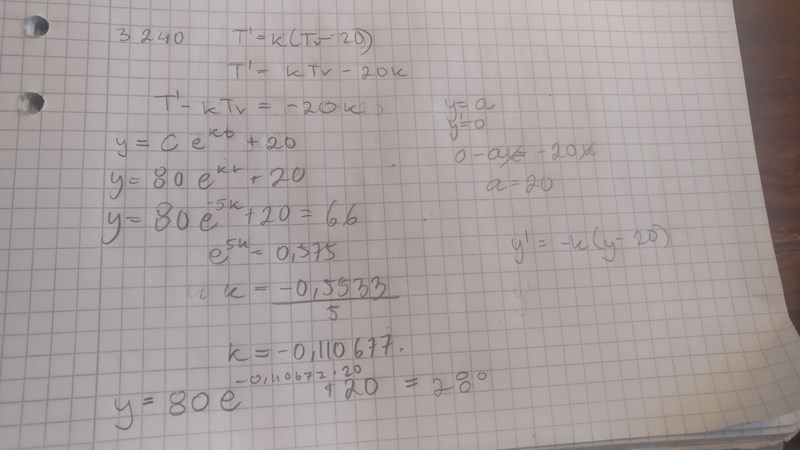 3240 T' = k(Tv-20)
T' = kTv - 20k
T' - kTv = -20k
y = Ce^kt + 20
y = 80e^kt + 20
y = 80e^-5k + 20 = 66
e^5k = 0,575
k = -0,5533
5
k = -0,110677.
y = 80e^-0,110672·20 + 20 = 28°
y = a
y' = 0
0 - ak = -20k
a = 20
y' = -k(y-20)